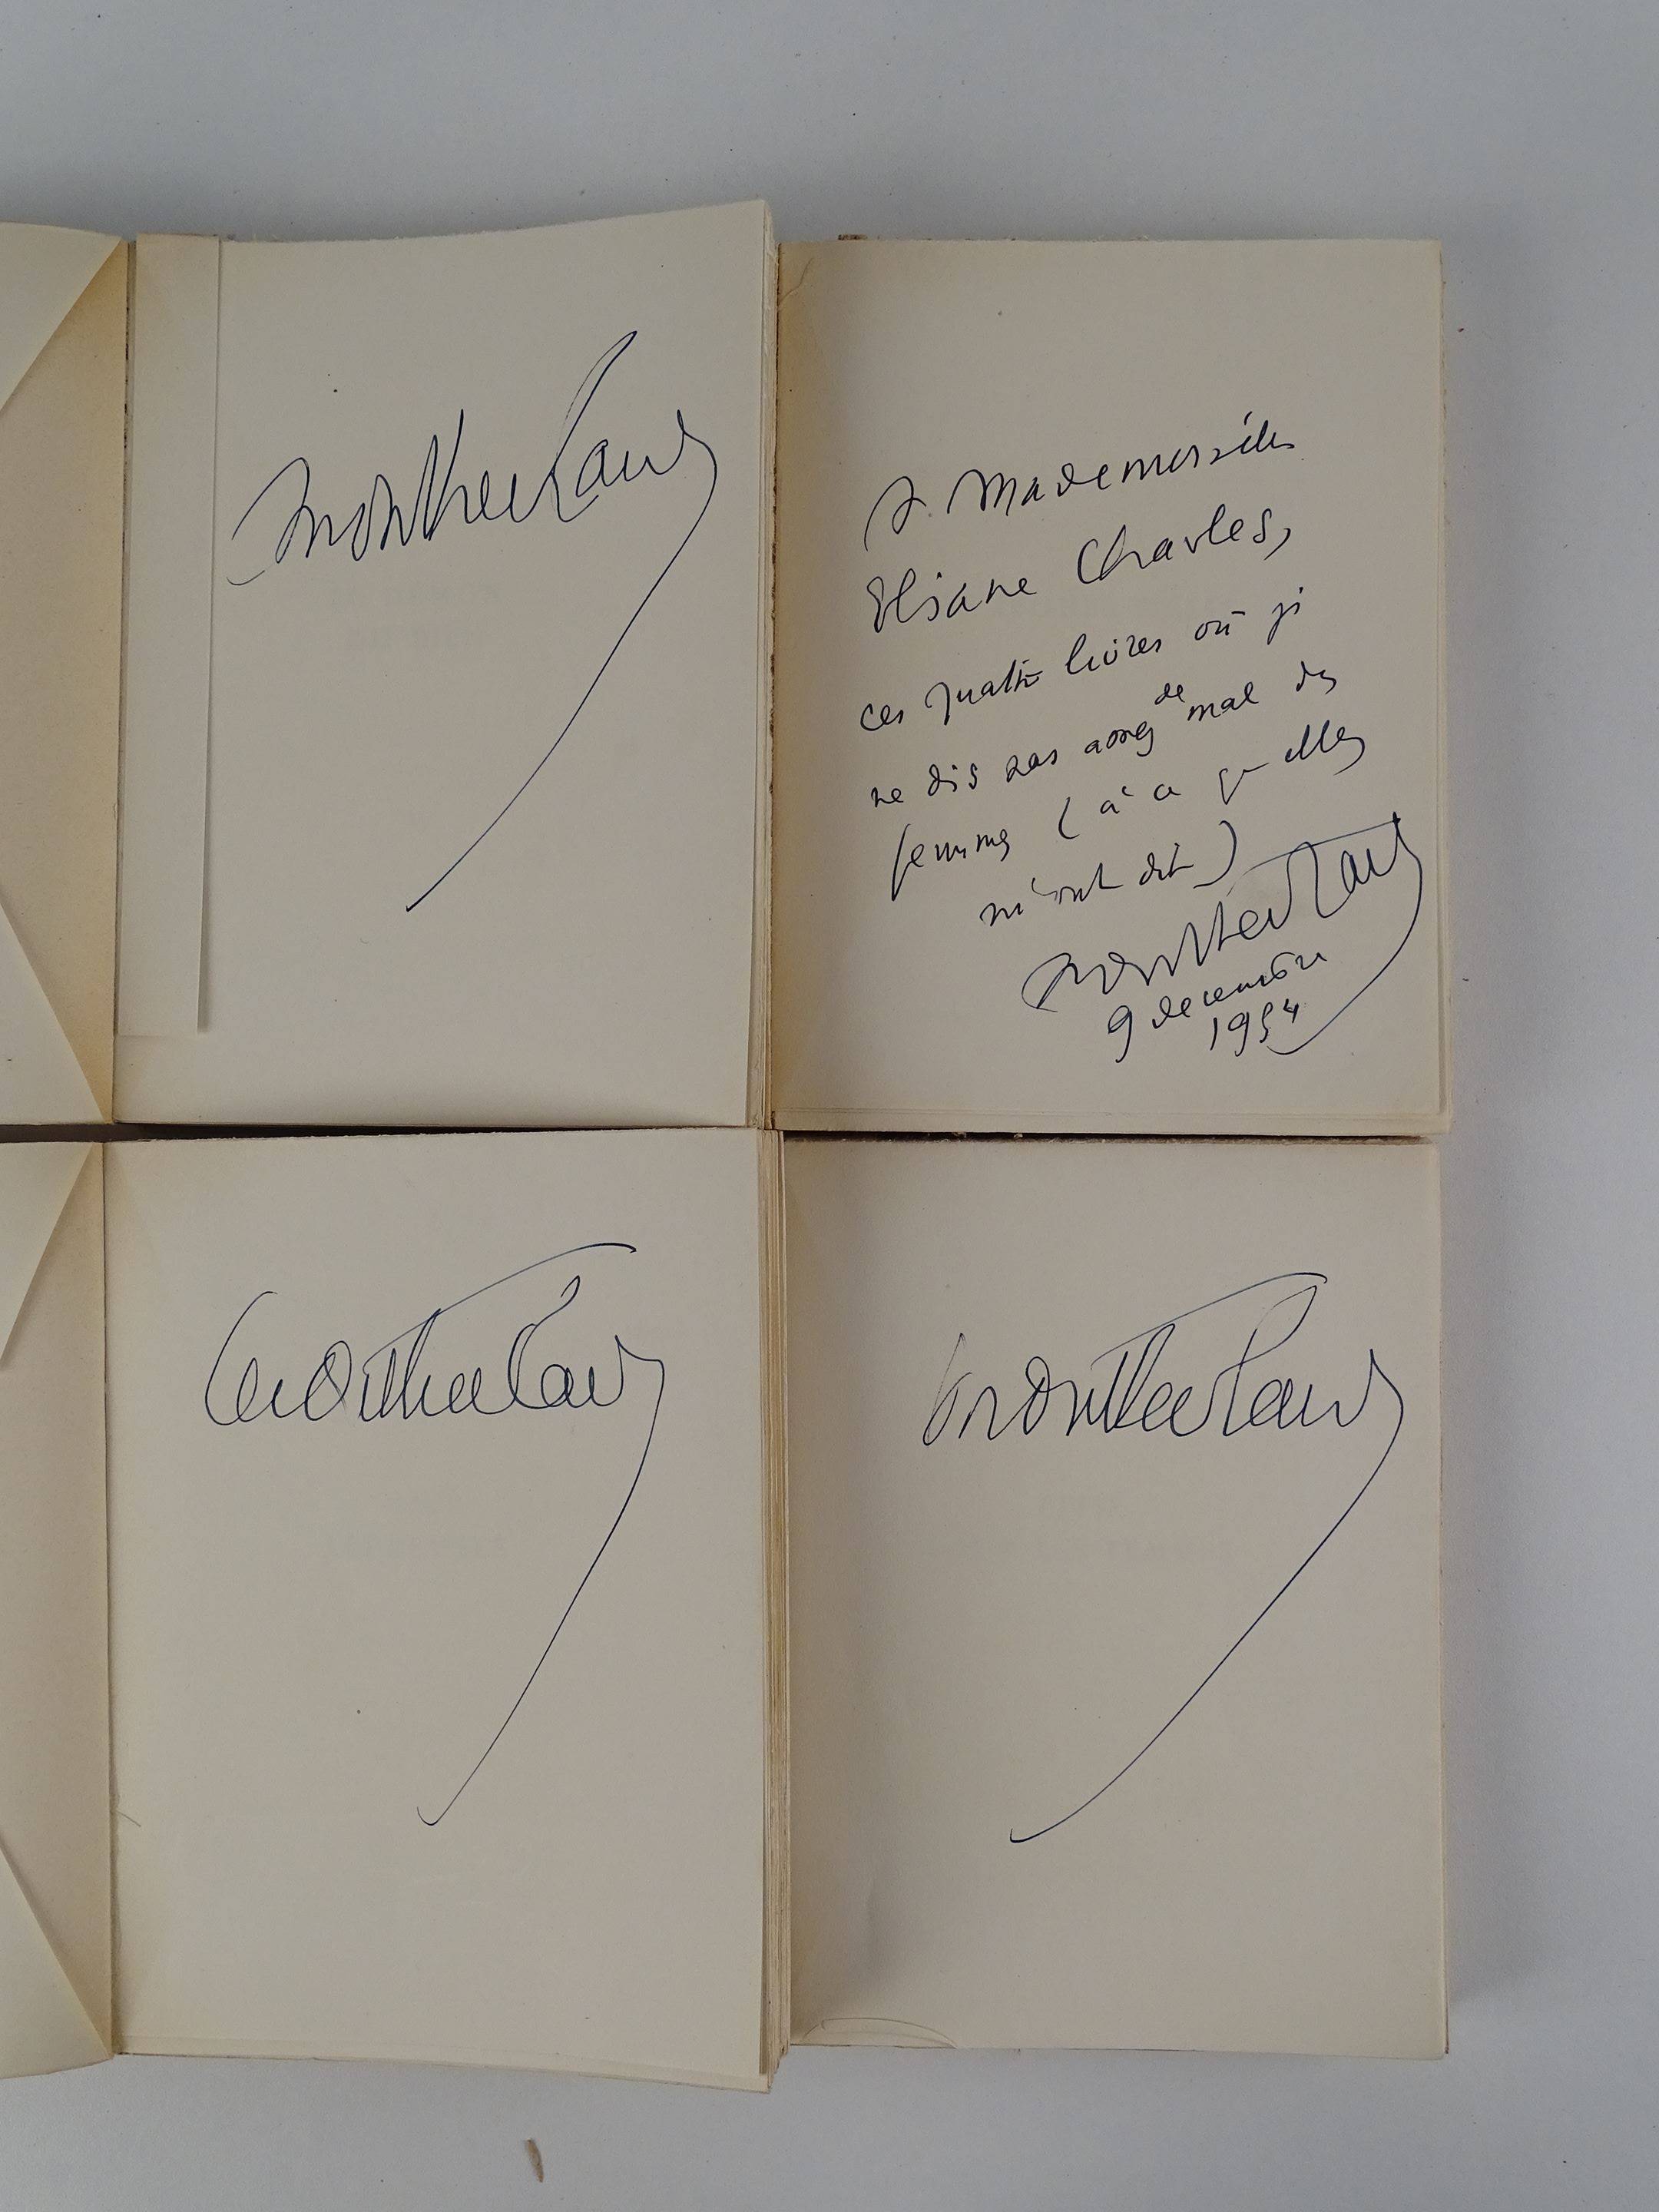 Montherlant
A Mademoiselle
Eliane Charles,
ces quatre livres où je
ne dis pas assez de mal des
femmes (à ce qu'elles
m'ont dit)
Montherlant
9 decembre
1954
Montherlant
Montherlant